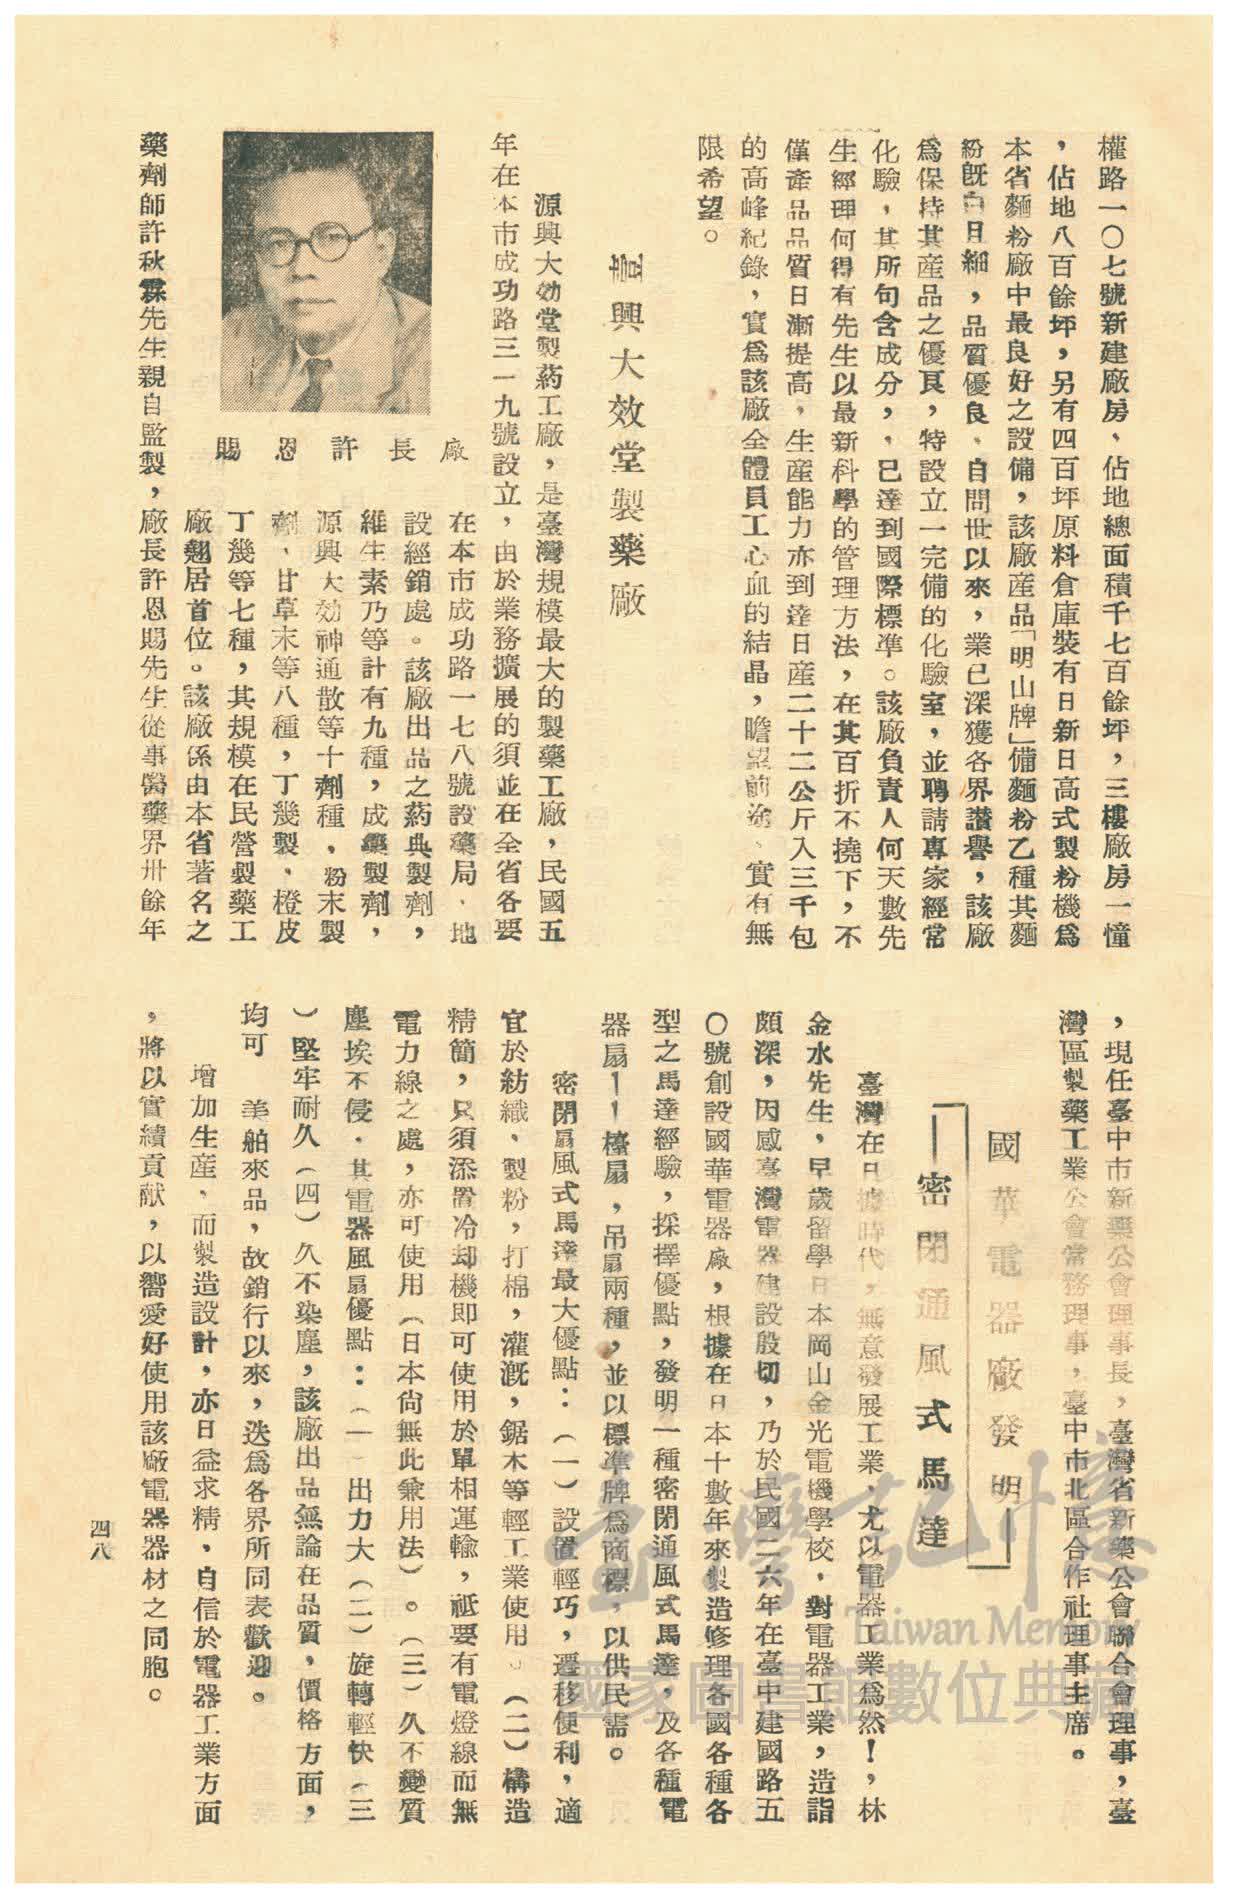 權路一〇七號新建廠房、佔地總面積千七百餘坪，三樓廠房一憧
，佔地八百餘坪，另有四百坪原料倉庫裝有日新日高式製粉機爲
本省麵粉廠中最良好之設備，該廠產品「明山牌」備麵粉乙種其麵
粉旣白且細，品質優良、自問世以來，業已深獲各界讃譽，該廠
爲保持其産品之優良，特設立一完備的化驗室，並聘請專家經常
化驗，其所句含成分，、已達到國際標準。該廠負責人何天數先
生經理何得有先生以最新科學的管理方法，在其百折不撓下，不
僅產品品質日漸提高，生産能力亦到達日産二十二公斤入三千包
的高峰紀錄，實爲該廠全體員工心血的結晶，瞻望前途、實有無
限希望。
興大效堂製藥廠
源興大効堂製葯工廠，是臺灣規模最大的製藥工廠，民國五
年在本市成功路三一九號設立，由於業務擴展的須並在全省各要
在本市成功路一七八號設藥局、地
設經銷處。該廠出品之葯典製劑，
維生素乃等計有九種，成藥製劑，
源興大効神通散等十劑種、粉末製
劑、甘草末等八種，丁幾製、橙皮
丁幾等七種，其規模在民營製藥工
廠翹居首位。該廠係由本省著名之
廠長許恩賜
藥劑師許秋霖先生親自監製，廠長許恩賜先生從事醫藥界卅餘年
，現任臺中市新藥公會理事長，臺灣省新藥公會聯合會理事，臺
灣區製藥工業公會常務理事，臺中市北區合作社理事主席。
國華電器廠發明
密閉通風式馬達
臺灣在日據時代，無意發展工業、尤以電器工業爲然！，林
金水先生，早歲留學日本岡山金光電機學校，對電器工業，造詣
頗深，因感臺灣電器建設殷切，乃於民國二六年在臺中建國路五
〇號創設國華電器廠，根據在日本十數年來製造修理各國各種各
型之馬達經驗，採擇優點，發明一種密閉通風式馬達，及各種電
器扇——檯扇，吊扇兩種，並以標準牌爲商標，以供民需。
密閉扇風式馬達最大優點：（一）設置輕巧，遷移便利，適
宜於紡織、製粉，打棉，灌漑，鋸木等輕工業使用。（二）構造
精簡，只須添置冷却機即可使用於單相運輸，祗要有電燈線而無
電力線之處，亦可使用（日本尙無此兼用法）。（三）久不變質
塵埃不侵．其電器風扇優點：（一 出力大（二）旋轉輕快（三
）堅牢耐久（四）久不染塵，該廠出品無論在品質，價格方面，
均可　美舶來品，故銷行以來，迭爲各界所同表歡迎。
增加生産、而製造設計，亦日益求精、自信於電器工業方面
，將以實績貢献，以嚮愛好使用該廠電器器材之同胞。
四八
臺灣記憶
Taiwan Memory
國家圖書館數位典藏